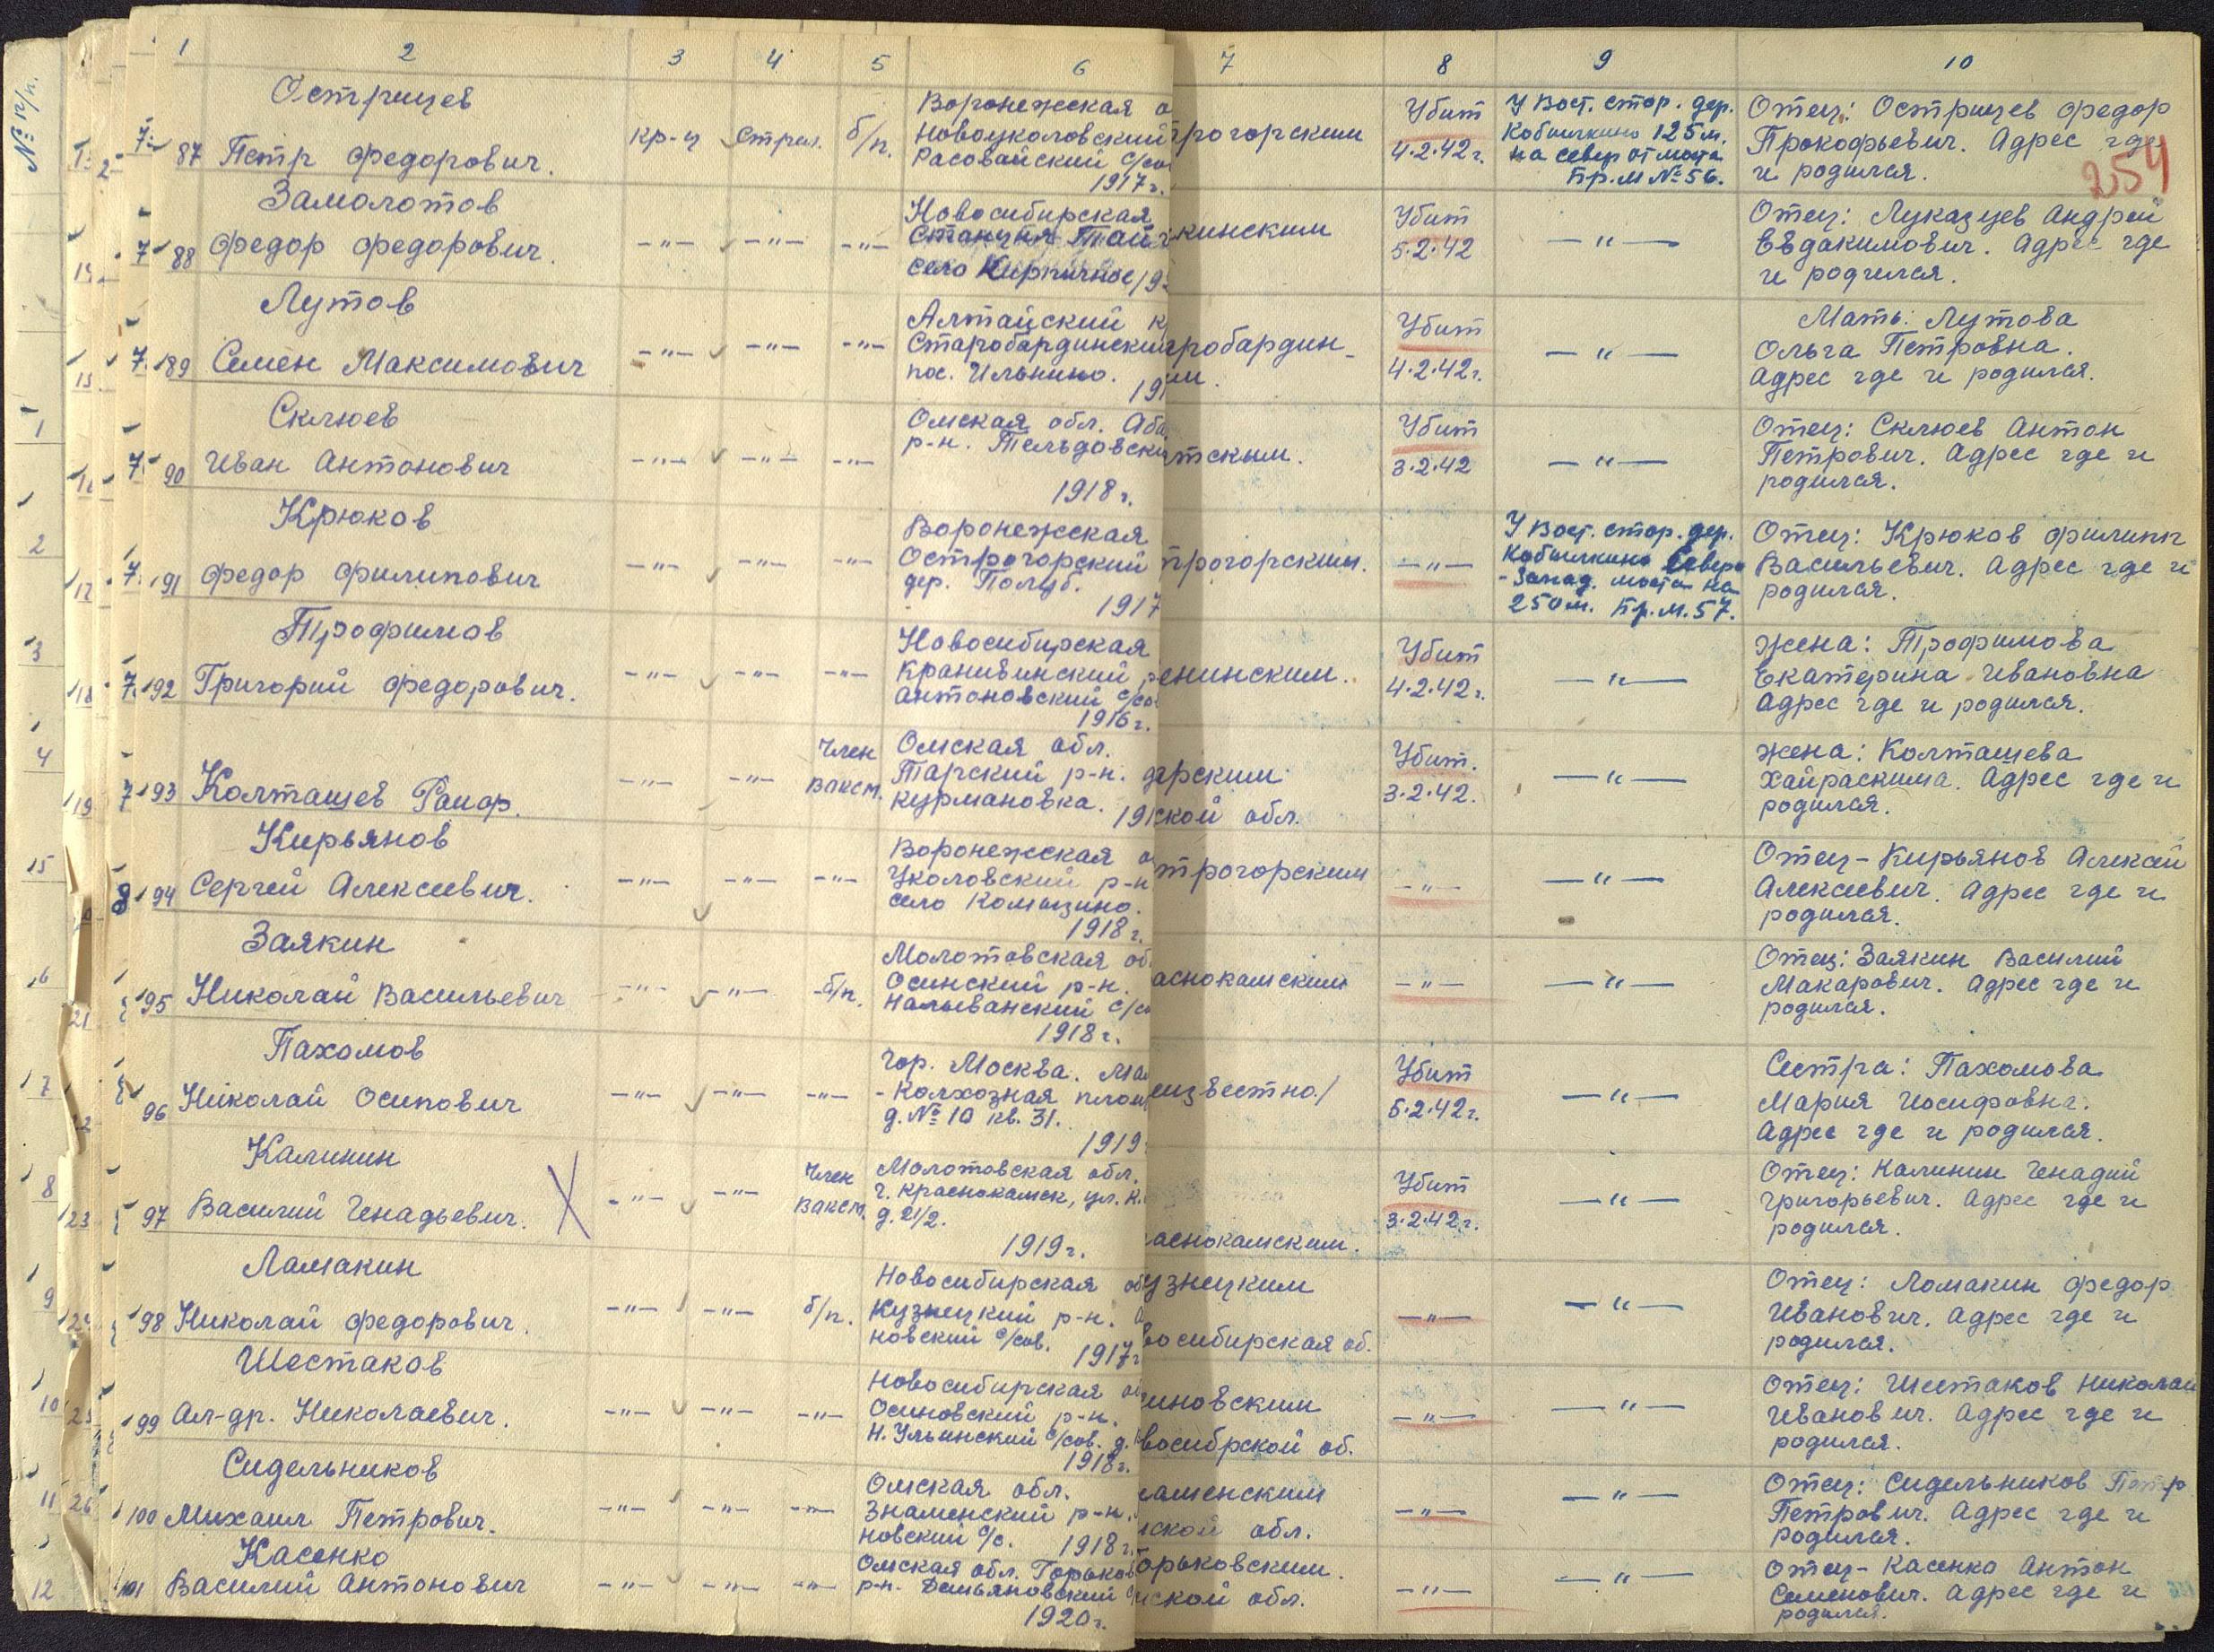 № п/п.
1 2 3 4 5 6 7 8 9 10
254
Острицев
87 Петр Федорович.
кр-ц стрел. б/п.
Воронежская о
Новоуколовский
Расовайский с/со
1917 г.
трогорским
Убит
4.2.42 г.
У Вост. стор. дер.
Кобылкино 125 м.
на север от моста
Бр. М № 56.
Отец: Острицев Федор
Прокофьевич. Адрес где
и родился.
Замолотов
88 Федор Федорович.
-"- -"- -"-
Новосибирская
Станция Тайг
село Кирпичное 19
кинским
Убит
5.2.42
-"-
Отец: Луказцев Андрей
Евдакимович. Адрес где
и родился.
Лутов
89 Семен Максимович
-"- -"- -"-
Алтайский к
Старобардинский
пос. Ильнино.
19
робардин-
им.
Убит
4.2.42 г.
-"-
Мать: Лутова
Ольга Петровна.
Адрес где и родился.
Склюев
90 Иван Антонович
-"- -"- -"-
Омская обл. Аба
р-н. Тельдовски
1918 г.
тским.
Убит
3.2.42
-"-
Отец: Склюев Антон
Петрович. Адрес где и
родился.
Крюков
91 Федор Филипович
-"- -"- -"-
Воронежская
Острогорский
дер. Полуб.
1917
трогорским.
-"-
У Вост. стор. дер.
Кобылкино Северо
-Запад. моста на
250 м. Бр. М. 57.
Отец: Крюков Филипп
Васильевич. Адрес где и
родился.
Трофимов
92 Григорий Федорович.
-"- -"- -"-
Новосибирская
Крапивинский
Антоновский с/со
1916 г.
ленинским.
Убит
4.2.42 г.
-"-
Жена: Трофимова
Екатерина Ивановна
Адрес где и родился.
93 Колташев Рапор.
-"- -"- Член
ВЛКСМ.
Омская обл.
Тарский р-н. д
Курмановка. 19
арским
ской обл.
Убит.
3.2.42.
-"-
Жена: Колташева
Хайраскима. Адрес где и
родился.
Кирьянов
94 Сергей Алексеевич.
-"- -"- -"-
Воронежская о
Уколовский р-н
село Комызино.
1918 г.
трогорским
-"-
-"-
Отец - Кирьянов Алексей
Алексеевич. Адрес где и
родился.
Заякин
95 Николай Васильевич
-"- -"- б/п.
Молотовская об
Осинский р-н.
Нальеванский с/со
1918 г.
аснокамским
-"-
-"-
Отец: Заякин Василий
Макарович. Адрес где и
родился.
Пахомов
96 Николай Осипович
-"- -"- -"-
Гор. Москва. Мал
- Колхозная площ
д. № 10 кв. 31.
1919
еизвестно/
Убит
5.2.42 г.
-"-
Сестра: Пахомова
Мария Иосифовна.
Адрес где и родился.
Калинин
97 Василий Генадьевич.
-"- -"- Член
ВЛКСМ.
Молотовская обл.
г. Краснокамск, ул. К.
д. 21/2.
1919 г.
аснокамским.
Убит
3.2.42 г.
-"-
Отец: Калинин Генадий
Григорьевич. Адрес где и
родился.
Ламакин
98 Николай Федорович.
-"- -"- б/п.
Новосибирская об
Кузнецкий р-н.
новский с/сов.
1917 г
узнецким
восибирская об.
-"-
-"-
Отец: Ломакин Федор
Иванович. Адрес где и
родился.
Шестаков
99 Ал-др. Николаевич.
-"- -"- -"-
Новосибирская об
Осиновский р-н.
Н. Ульинский с/сов. д.
1918 г.
синовским
восибрской об.
-"-
-"-
Отец: Шестаков Николай
Иванович. Адрес где и
родился.
Сидельников
100 Михаил Петрович.
-"- -"- -"-
Омская обл.
Знаменский р-н.
новский с/с. 1918 г.
наменским
ской обл.
-"-
-"-
Отец: Сидельников Петр
Петрович. Адрес где и
родился.
Касенко
101 Василий Антонович
-"- -"- -"-
Омская обл. Горьков
р-н. Демьяновский с/
1920 г.
орьковским.
ской обл.
-"-
-"-
Отец - Касенко Антон
Семенович. Адрес где и
родился.